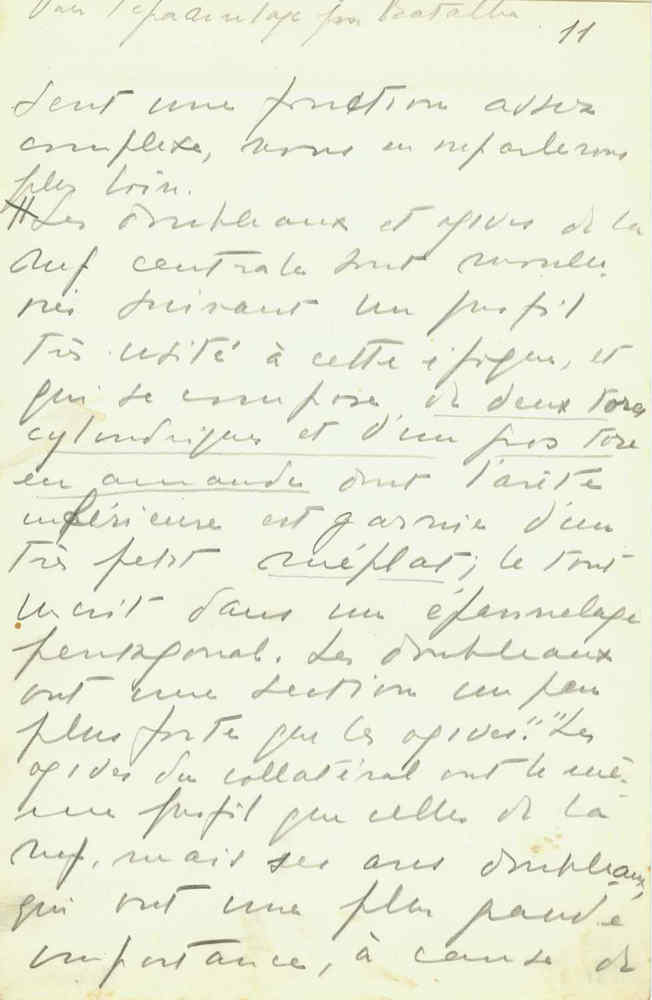 Voir l'épannelage par Batalha
11
dent une fonction assez
complexe, nous en reparlerons
plus loin.
"Les doubleaux et ogives de la
nef centrale sont moulu-
rés suivant un profil
très usité à cette époque, et
qui se compose de deux tores
cylindriques et d'un gros tore
en amande dont l'arête
inférieure est garnie d'un
très petit méplat; le tout
inscrit dans un épannelage
pentagonal. Les doubleaux
ont une section un peu
plus forte que les ogives." "Les
ogives du collatéral ont le mê-
me profil que celles de la
nef, mais ses arcs doubleaux,
qui ont une plus grande
importance, à cause de